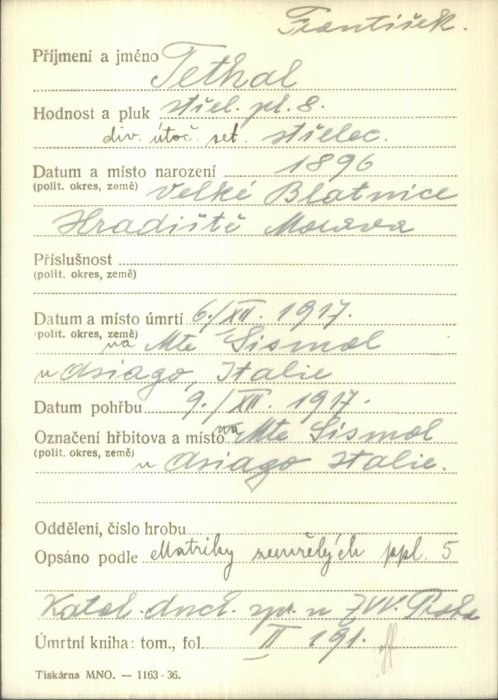 František.
Příjmení a jméno Tethal
Hodnost a pluk střel. pl. 8.
div. útoč. set. střelec.
Datum a místo narození 1896
(polit. okres, země) Velké Blatnice
Hradiště Morava
Příslušnost
(polit. okres, země)
Datum a místo úmrtí 6./XII. 1917.
polit. okres, země) na Mte Sismol
u Asiago, Italie
Datum pohřbu 9./XII. 1917.
Označení hřbitova a místo na Mte Sismol
(polit. okres, země) u Asiago Italie.
Oddělení, číslo hrobu
Opsáno podle Matriky zemřelých ppl. 5
Katol. duch. spr. u ZVV. Praha
Úmrtní kniha: tom., fol. II 191.
Tiskárna MNO. — 1163-36.